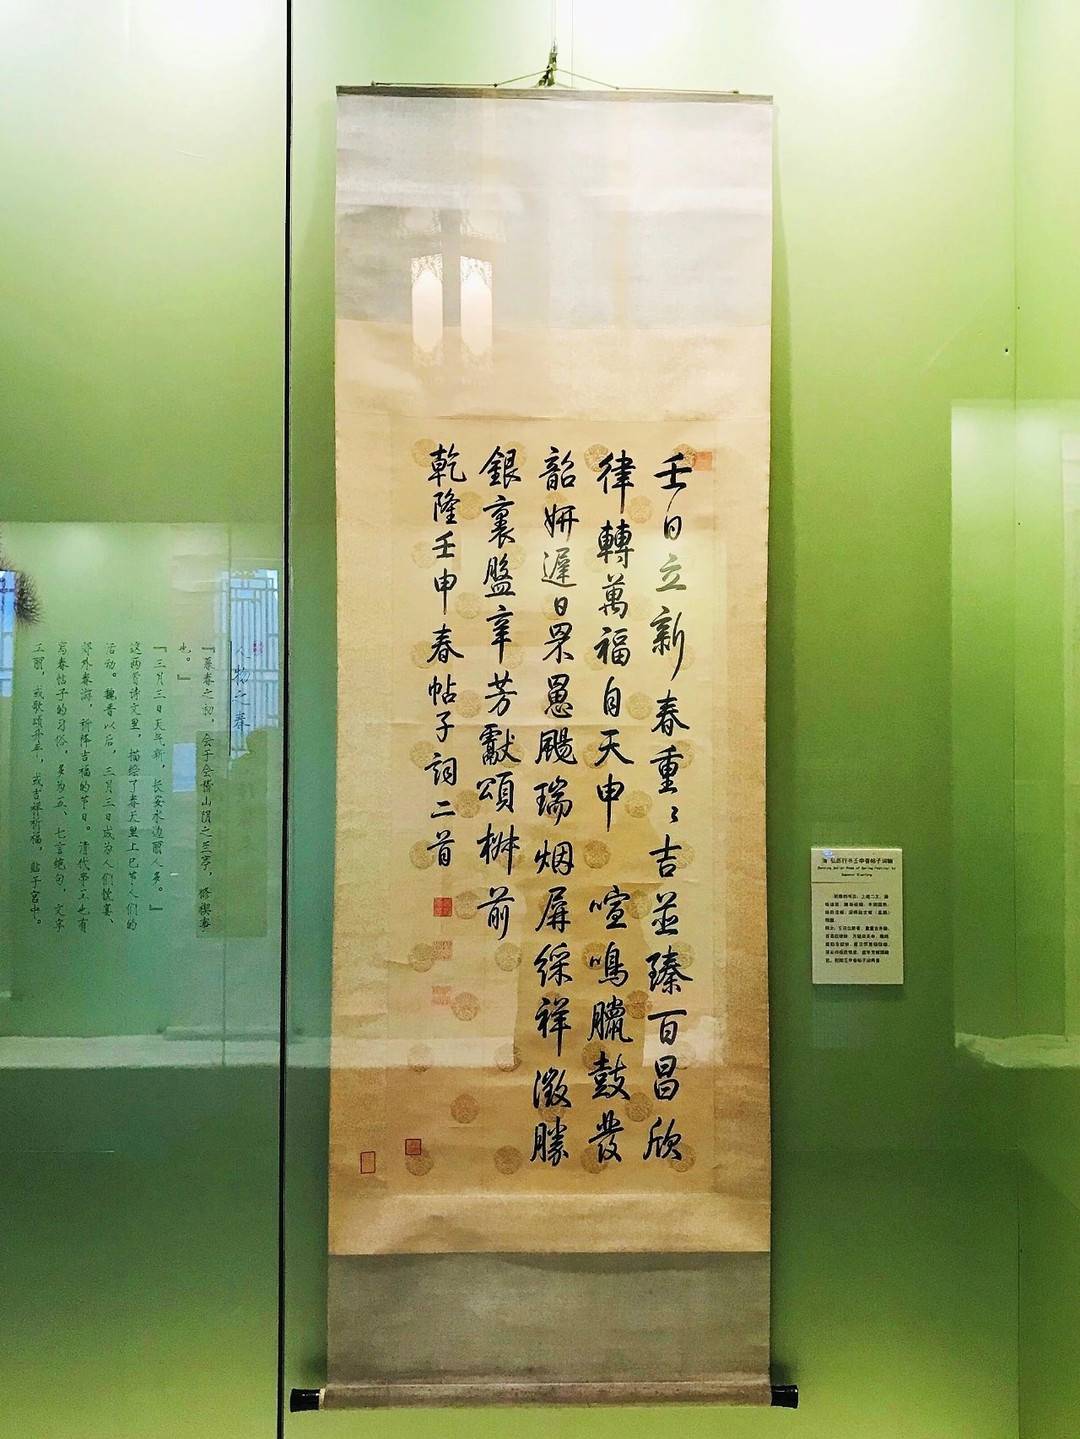 壬日立新春重〻吉並臻百昌欣
律轉萬福自天申 喧鳴臘鼓發
韶妍遲日罘罳颺瑞烟屏綵祥澂勝
銀裹盤辛芳獻頌椒前
乾隆壬申春帖子詞二首
人物之春
『暮春之初，会于会稽山阴之兰亭，修禊事
也。』
『三月三日天气新，长安水边丽人多。』
这两首诗文里，描绘了春天里上巳节人们的
活动。魏晋以后，三月三日成为人们饮宴、
郊外春游，祈降吉福的节日。清代帝王也有
写春帖子的习俗，多为五、七言绝句，文字
工丽，或歌颂升平，或吉祥祈福，贴于宫中。
清 弘历行书壬申春帖子词轴